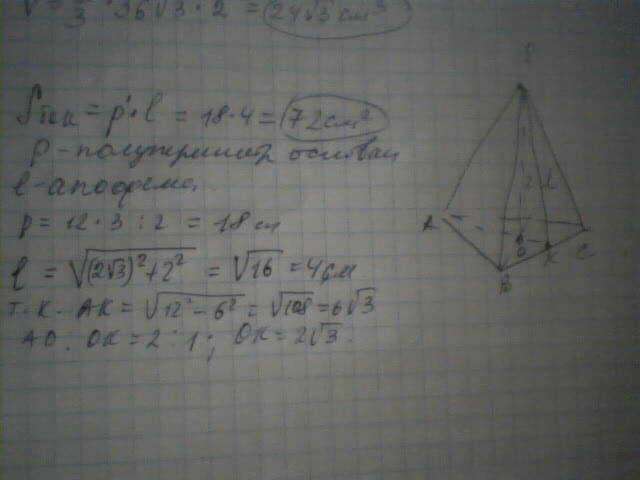 V = 1/3 · 36√3 · 2 = 24√3 см³
Sбок = p · l = 18 · 4 = 72 см²
p - полупериметр основан
l - апофема.
p = 12 · 3 : 2 = 18 см
l = √((2√3)² + 2²) = √16 = 4 см
т.к. AK = √(12² - 6²) = √108 = 6√3
AO : OK = 2 : 1; OK = 2√3.
A
2
l
O
K
C
B